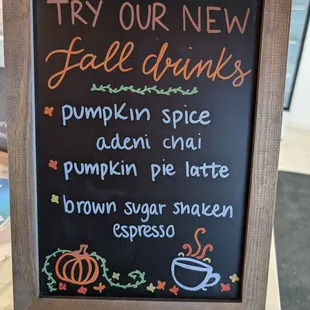 TRY OUR NEW
fall drinks
pumpkin spice
adeni chai
pumpkin pie latte
brown sugar shaken
espresso